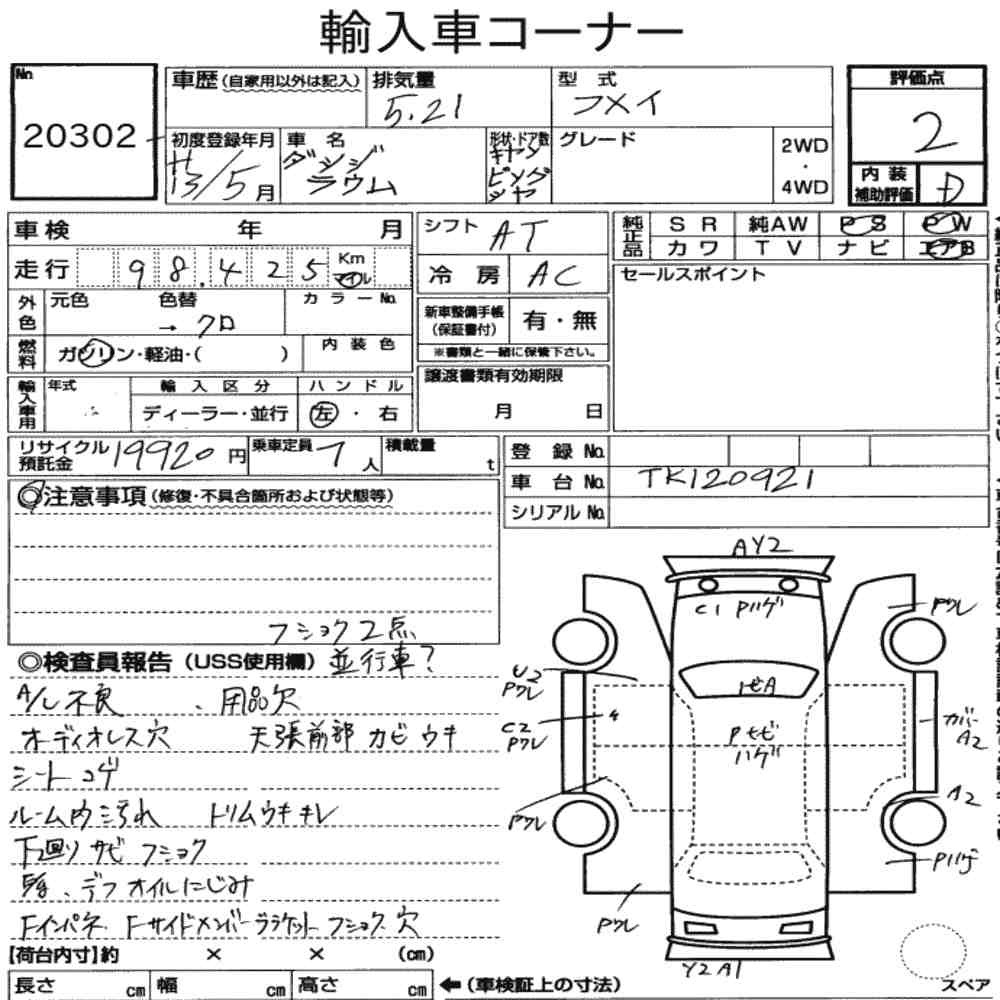 輸入車コーナー
No.
20302
車歴 (自家用以外は記入)
排気量
5.21
型式
フメイ
評価点
2
初度登録年月
H13/5月
車名
ダッジ
ラウム
形状・ドア数
グレード
2WD
・
4WD
内装
補助評価
D
車検 年 月
シフト
AT
純正品
SR 純AW PS PW
カワ TV ナビ エアB
走行
98,425
Km
マイル
冷房
AC
セールスポイント
外色
元色 色替
→ クロ
カラーNo.
新車整備手帳
(保証書付)
有・無
※書類と一緒に保管下さい。
燃料
ガソリン・軽油・( )
内装色
輸入車用
年式
輸入区分
ディーラー・並行
ハンドル
左・右
譲渡書類有効期限
月 日
リサイクル
預託金
19920円
乗車定員
7人
積載量
t
登録No.
車台No.
TK120921
シリアルNo.
◎注意事項 (修復・不具合箇所および状態等)
フショク2点
◎検査員報告 (USS使用欄) 並行車?
A/C不良、用品欠
オーディオレス穴 天張前部カビウキ
シートコゲ
ルーム内ヨゴれ トリムウキキレ
下回りサビフショク
デフオイルにじみ
Fインパネ Fサイドメンバーブラケットフショク穴
AY2
C1 Pハゲ
Pワレ
U2
Pワレ
トビA
C2
Pワレ
Pセビ
ハゲ
カバー
A2
Pワレ
A2
Pハゲ
Pワレ
Y2A1
【荷台内寸】約 × × (cm)
長さ cm 幅 cm 高さ cm
←(車検証上の寸法)
スペア